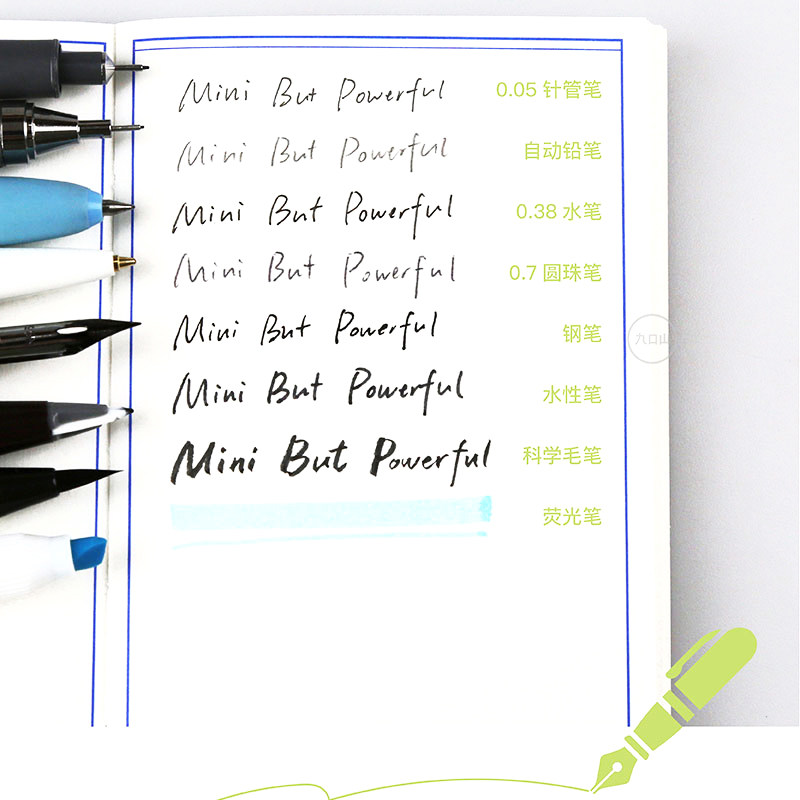 Mini But Powerful 0.05 针管笔
Mini But Powerful 自动铅笔
Mini But Powerful 0.38 水笔
Mini But Powerful 0.7 圆珠笔
Mini But Powerful 钢笔
九口山
Mini But Powerful 水性笔
Mini But Powerful 科学毛笔
荧光笔